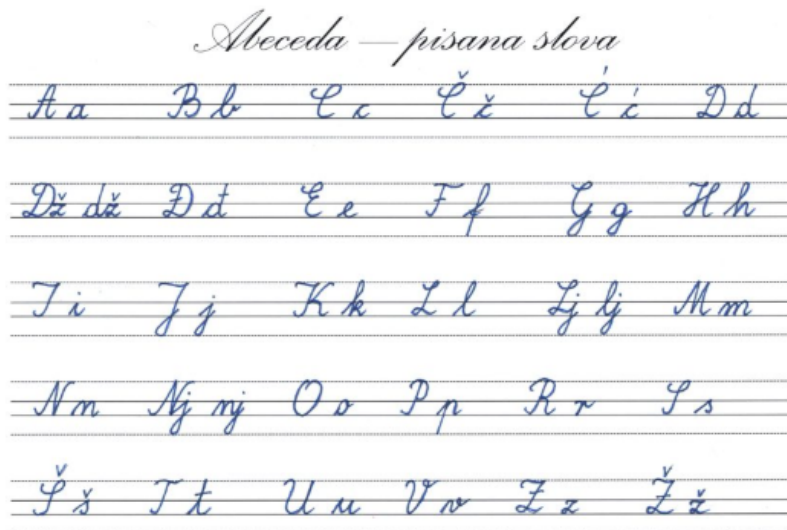 Abeceda — pisana slova
A a B b C c Č č Ć ć D d
Dž dž Đ đ E e F f G g H h
I i J j K k L l Lj lj M m
N n Nj nj O o P p R r S s
Š š T t U u V v Z z Ž ž